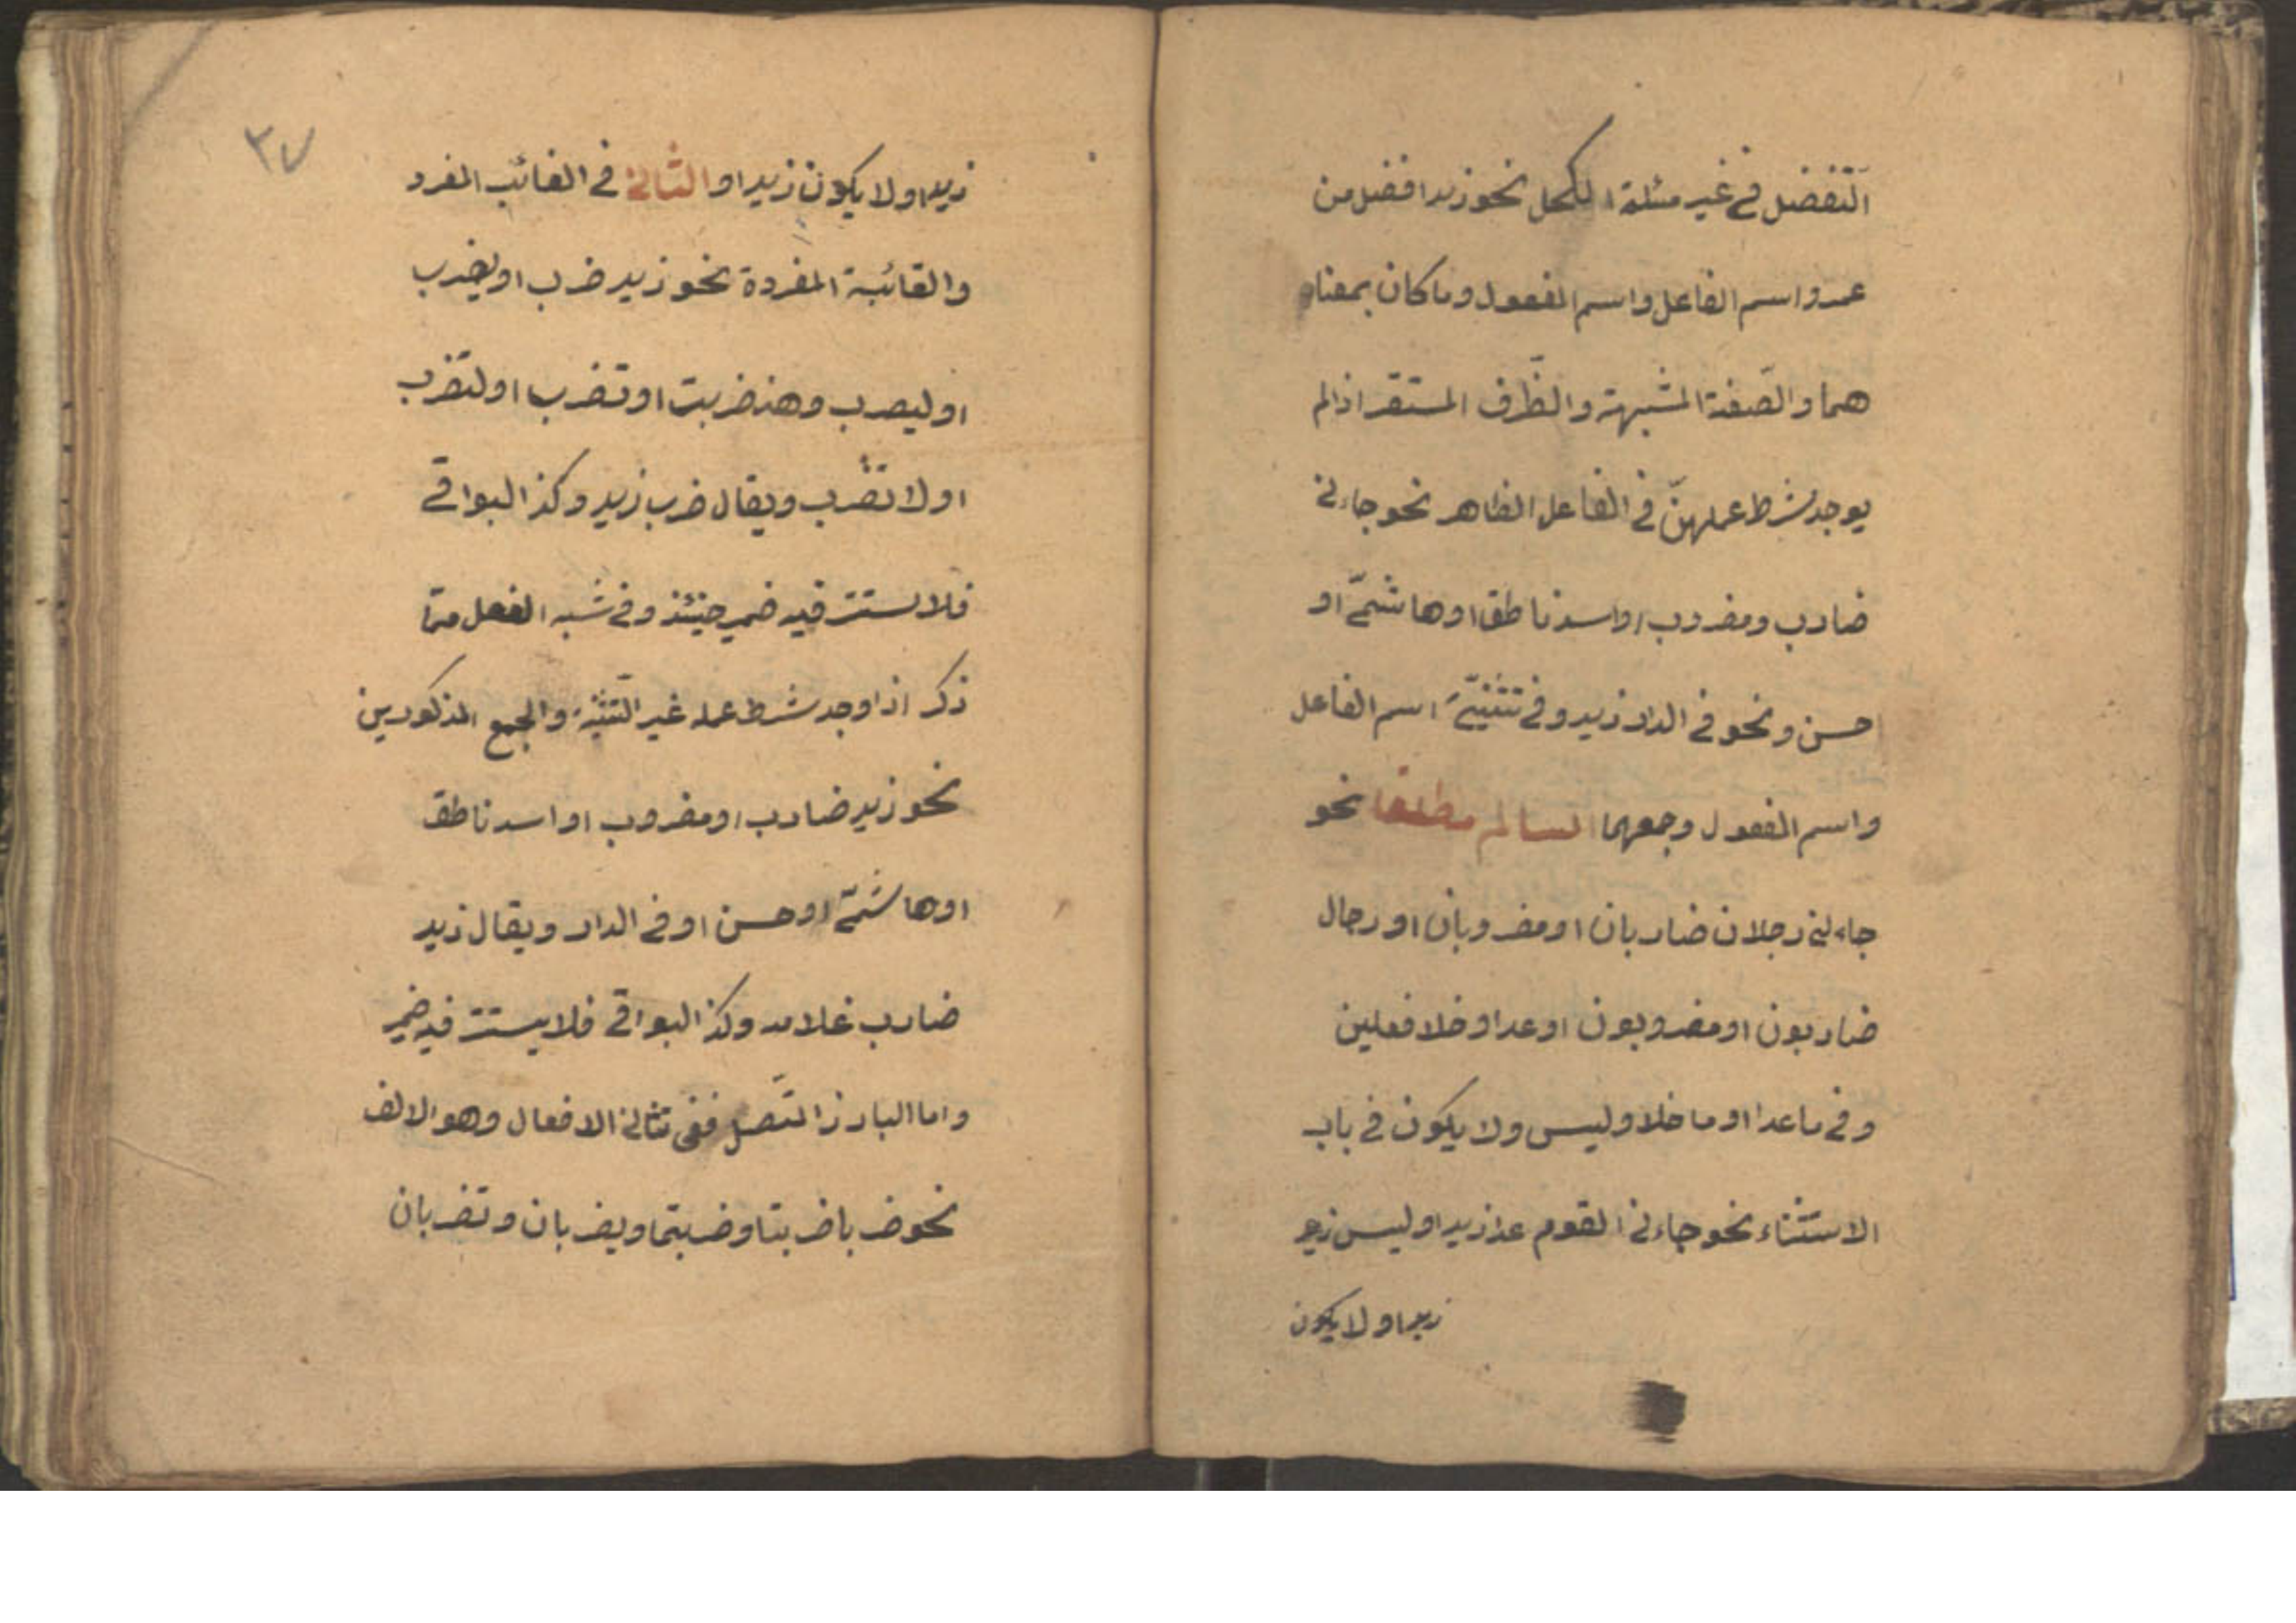 التّفضل في غير مسئلة الكحل نحو زيد افضل من
عمرو واسم الفاعل واسم المفعول وما كان بمعناه
هما والصّفة المشبهة والظّرف المستقر اذا لم
يوجد شرط عملهنّ في الفاعل الظاهر نحو جاءني
ضارب ومضروب او اسد ناطق او هاشمىّ او
حسن ونحو في الدار زيد وفي تثنيّة اسم الفاعل
واسم المفعول وجمعهما السالم مطلقا نحو
جاءني رجلان ضاربان او مضروبان او رجال
ضاربون او مضروبون او عدا وخلا فعلين
وفي ما عدا او ما خلا وليس ولا يكون في باب
الاستثناء نحو جاءني القوم عدا زيدا وليس زيد
زيدا ولا يكون
٣٧
زيدا ولا يكون زيدا والثاني في الغائب المفرد
والغائبة المفردة نحو زيد ضرب او يضرب
او ليضرب وهند ضربت او تضرب او لتضرب
او لا تضرب ويقال ضرب زيد وكذا البواقي
فلا يستتر فيه ضمير حينئذ وفي شبه الفعل ممّا
ذكر اذا وجد شرط عمله غير التّثنية والجمع المذكورين
نحو زيد ضارب او مضروب او اسد ناطق
او هاشمىّ او حسن او في الدار ويقال زيد
ضارب غلامه وكذا البواقي فلا يستتر فيه ضمير
واما البارز المتّصل ففي تثاني الافعال وهو الالف
نحو ضربا ضربتا وضربتما ويضربان وتضربان